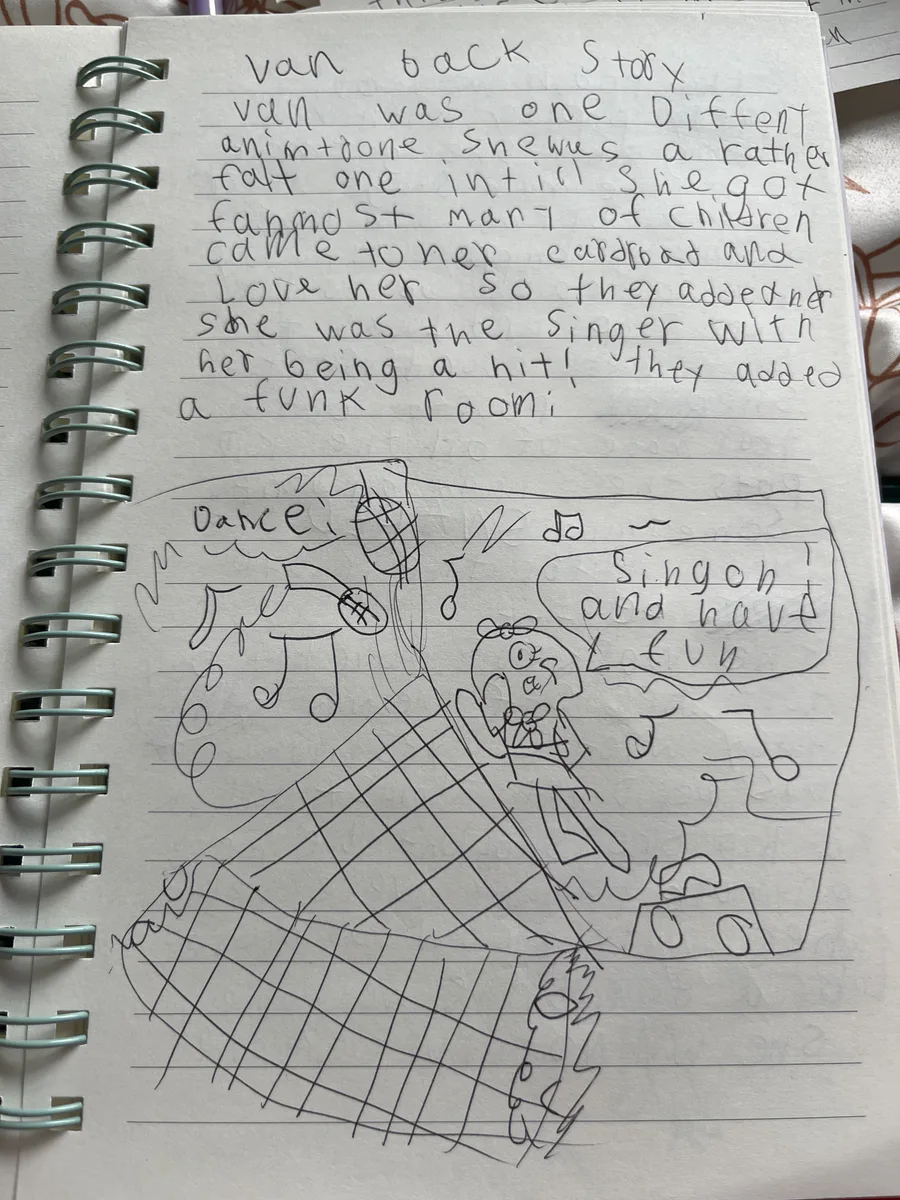 van back Story
van was one Diffent
animtoone shewus a rather
falt one intill she got
fanmost many of children
came to her cardroad and
Love her so they added her
she was the singer with
her being a hit! they added
a funk room!
Dance!
Sing on!
and have
fun